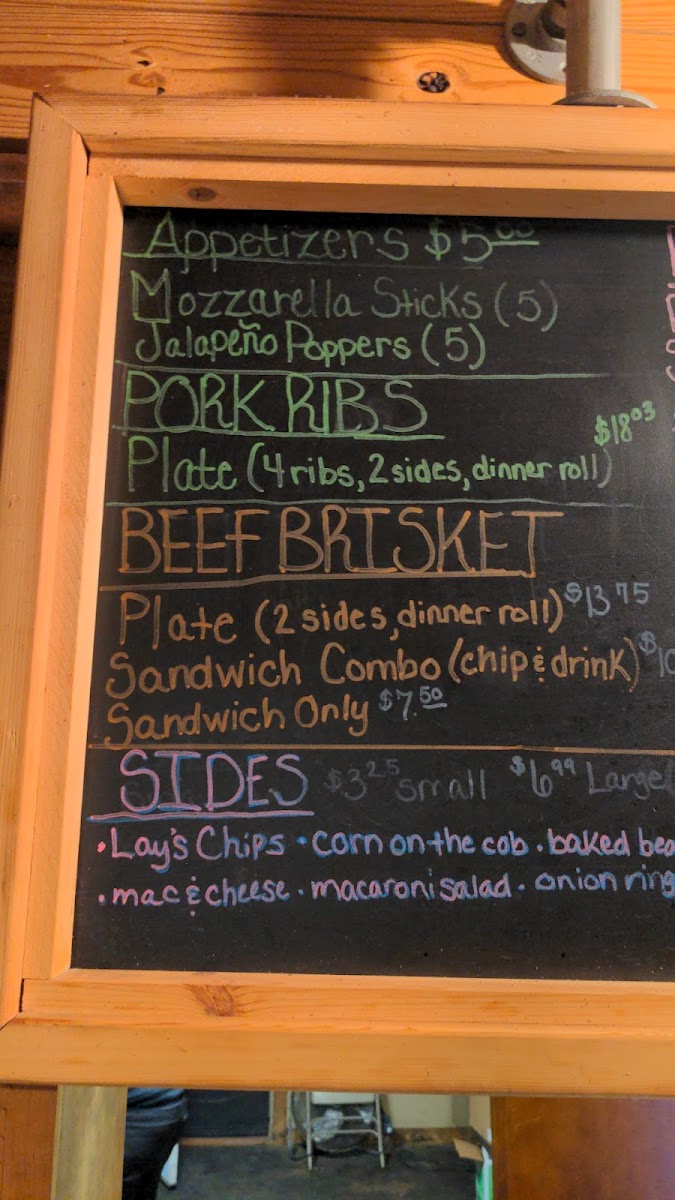 Appetizers $5.00
Mozzarella Sticks (5)
Jalapeño Poppers (5)
PORK RIBS
$18.03
Plate (4 ribs, 2 sides, dinner roll)
BEEF BRISKET
Plate (2 sides, dinner roll) $13.75
Sandwich Combo (chip & drink) $10
Sandwich Only $7.50
SIDES $3.25 small $6.99 Large
• Lay's Chips • corn on the cob • baked bea
• mac & cheese • macaroni salad • onion ring